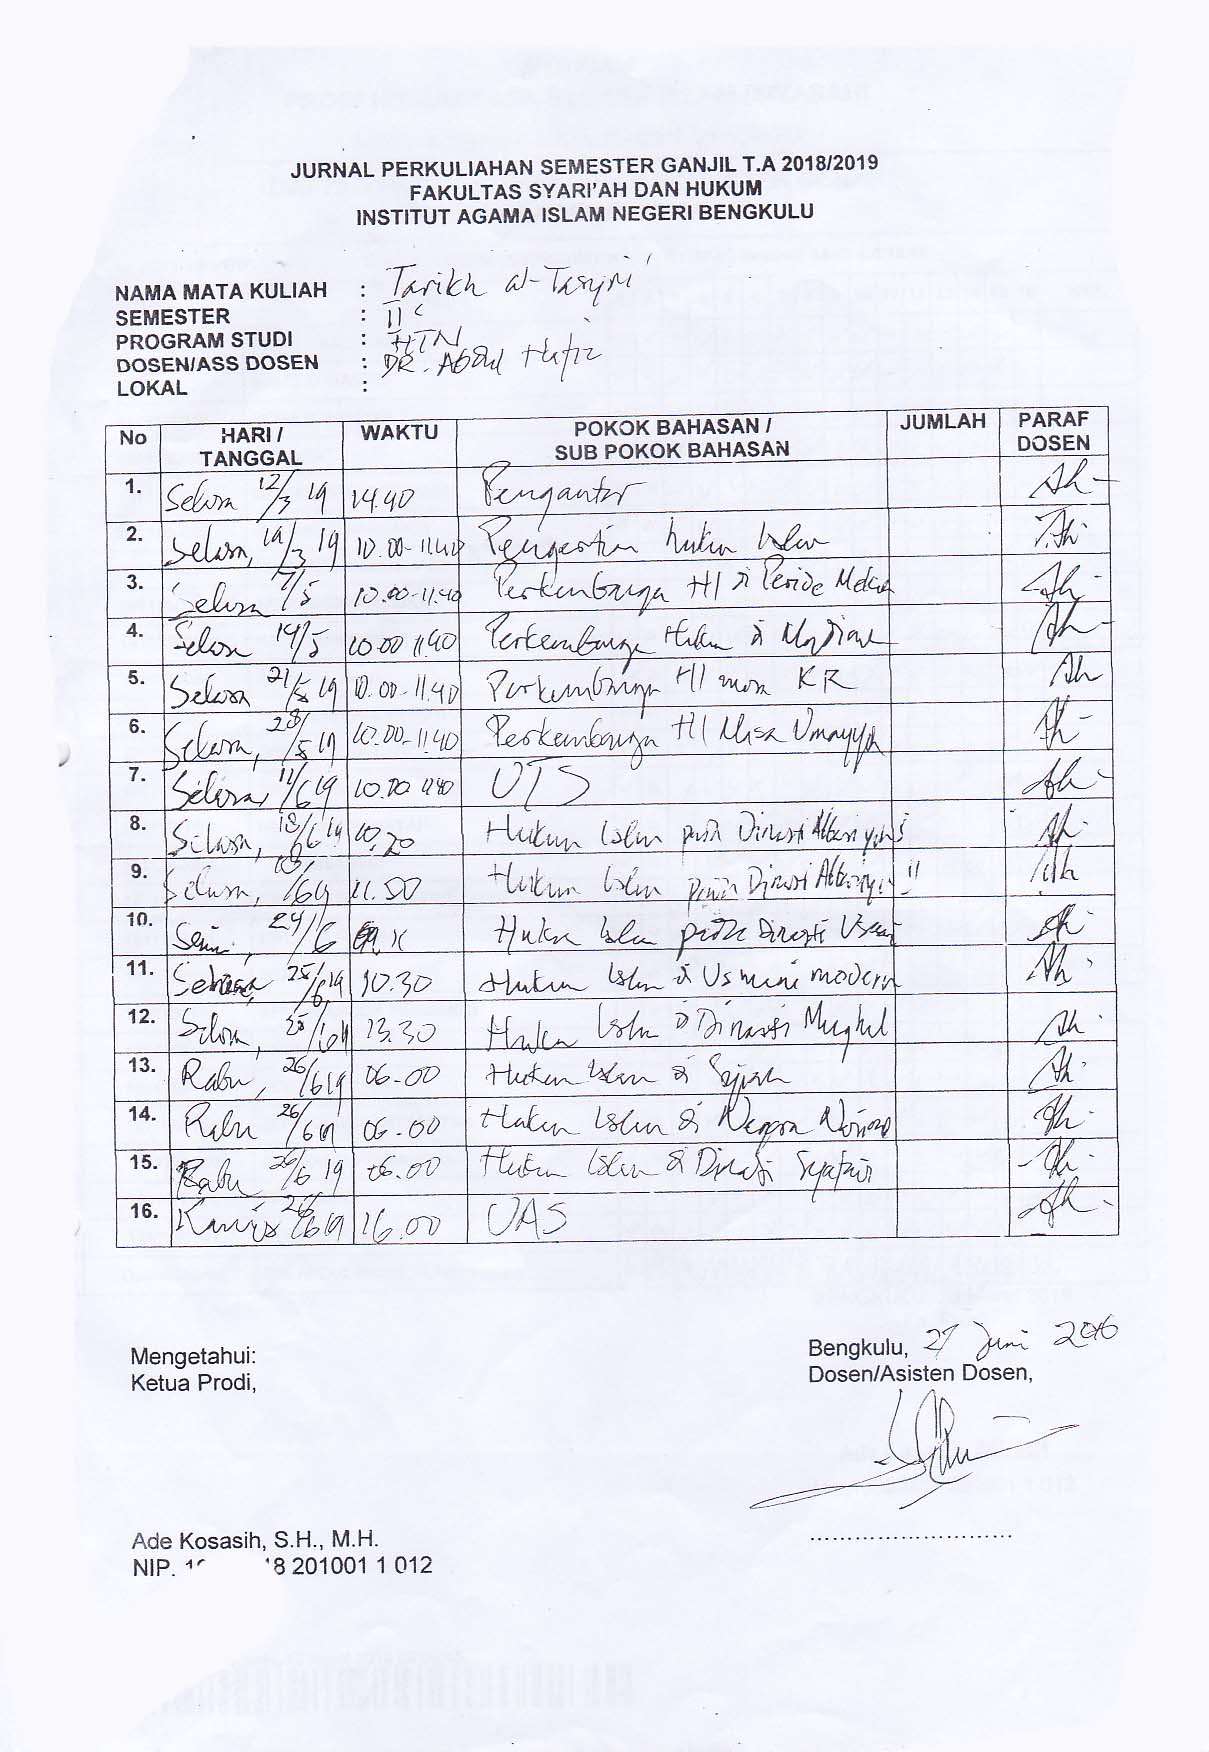 JURNAL PERKULIAHAN SEMESTER GANJIL T.A 2018/2019
FAKULTAS SYARI'AH DAN HUKUM
INSTITUT AGAMA ISLAM NEGERI BENGKULU
NAMA MATA KULIAH : Tarikh al-Tasyri'
SEMESTER : II C
PROGRAM STUDI : HTN
DOSEN/ASS DOSEN : DR. Abdul Hafiz
LOKAL :
No HARI / TANGGAL WAKTU POKOK BAHASAN / SUB POKOK BAHASAN JUMLAH PARAF DOSEN
1. Selasa 12/3 19 14.40 Pengantar
2. Selasa, 19/3 19 10.00-11.40 Pengertian hukum Islam
3. Selasa 7/5 10.00-11.40 Perkembanga HI di Periode
4. Selasa 14/5 10.00 11.40 Perkembanga Hukum di
5. Selasa 21/5 19 10.00-11.40 Perkembanga HI masa KR
6. Selasa, 28/5 19 10.00-11.40 Perkembanga HI Masa Umayyah
7. Selasa, 11/6 19 10.00 11.40 UTS
8. Selasa, 18/6 19 10.20 Hukum Islam pada Dinasti
9. Selasa, 18/6 19 11.50 Hukum Islam pada Dinasti II
10. Senin, 24/6 Hukum Islam pada Dinasti
11. Selasa, 25/6 19 10.30 Hukum Islam di Usmani modern
12. Selasa, 25/6 19 13.30 Hukum Islam di Dinasti Mughal
13. Rabu, 26/6 19 06.00 Hukum Islam di
14. Rabu 26/6 19 06.00 Hukum Islam di Negara
15. Rabu 26/6 19 06.00 Hukum Islam di Dinasti
16. Kamis 6 19 16.00 UAS
Mengetahui:
Ketua Prodi,
Bengkulu, 27 Juni
Dosen/Asisten Dosen,
Ade Kosasih, S.H., M.H.
NIP. 8 201001 1 012